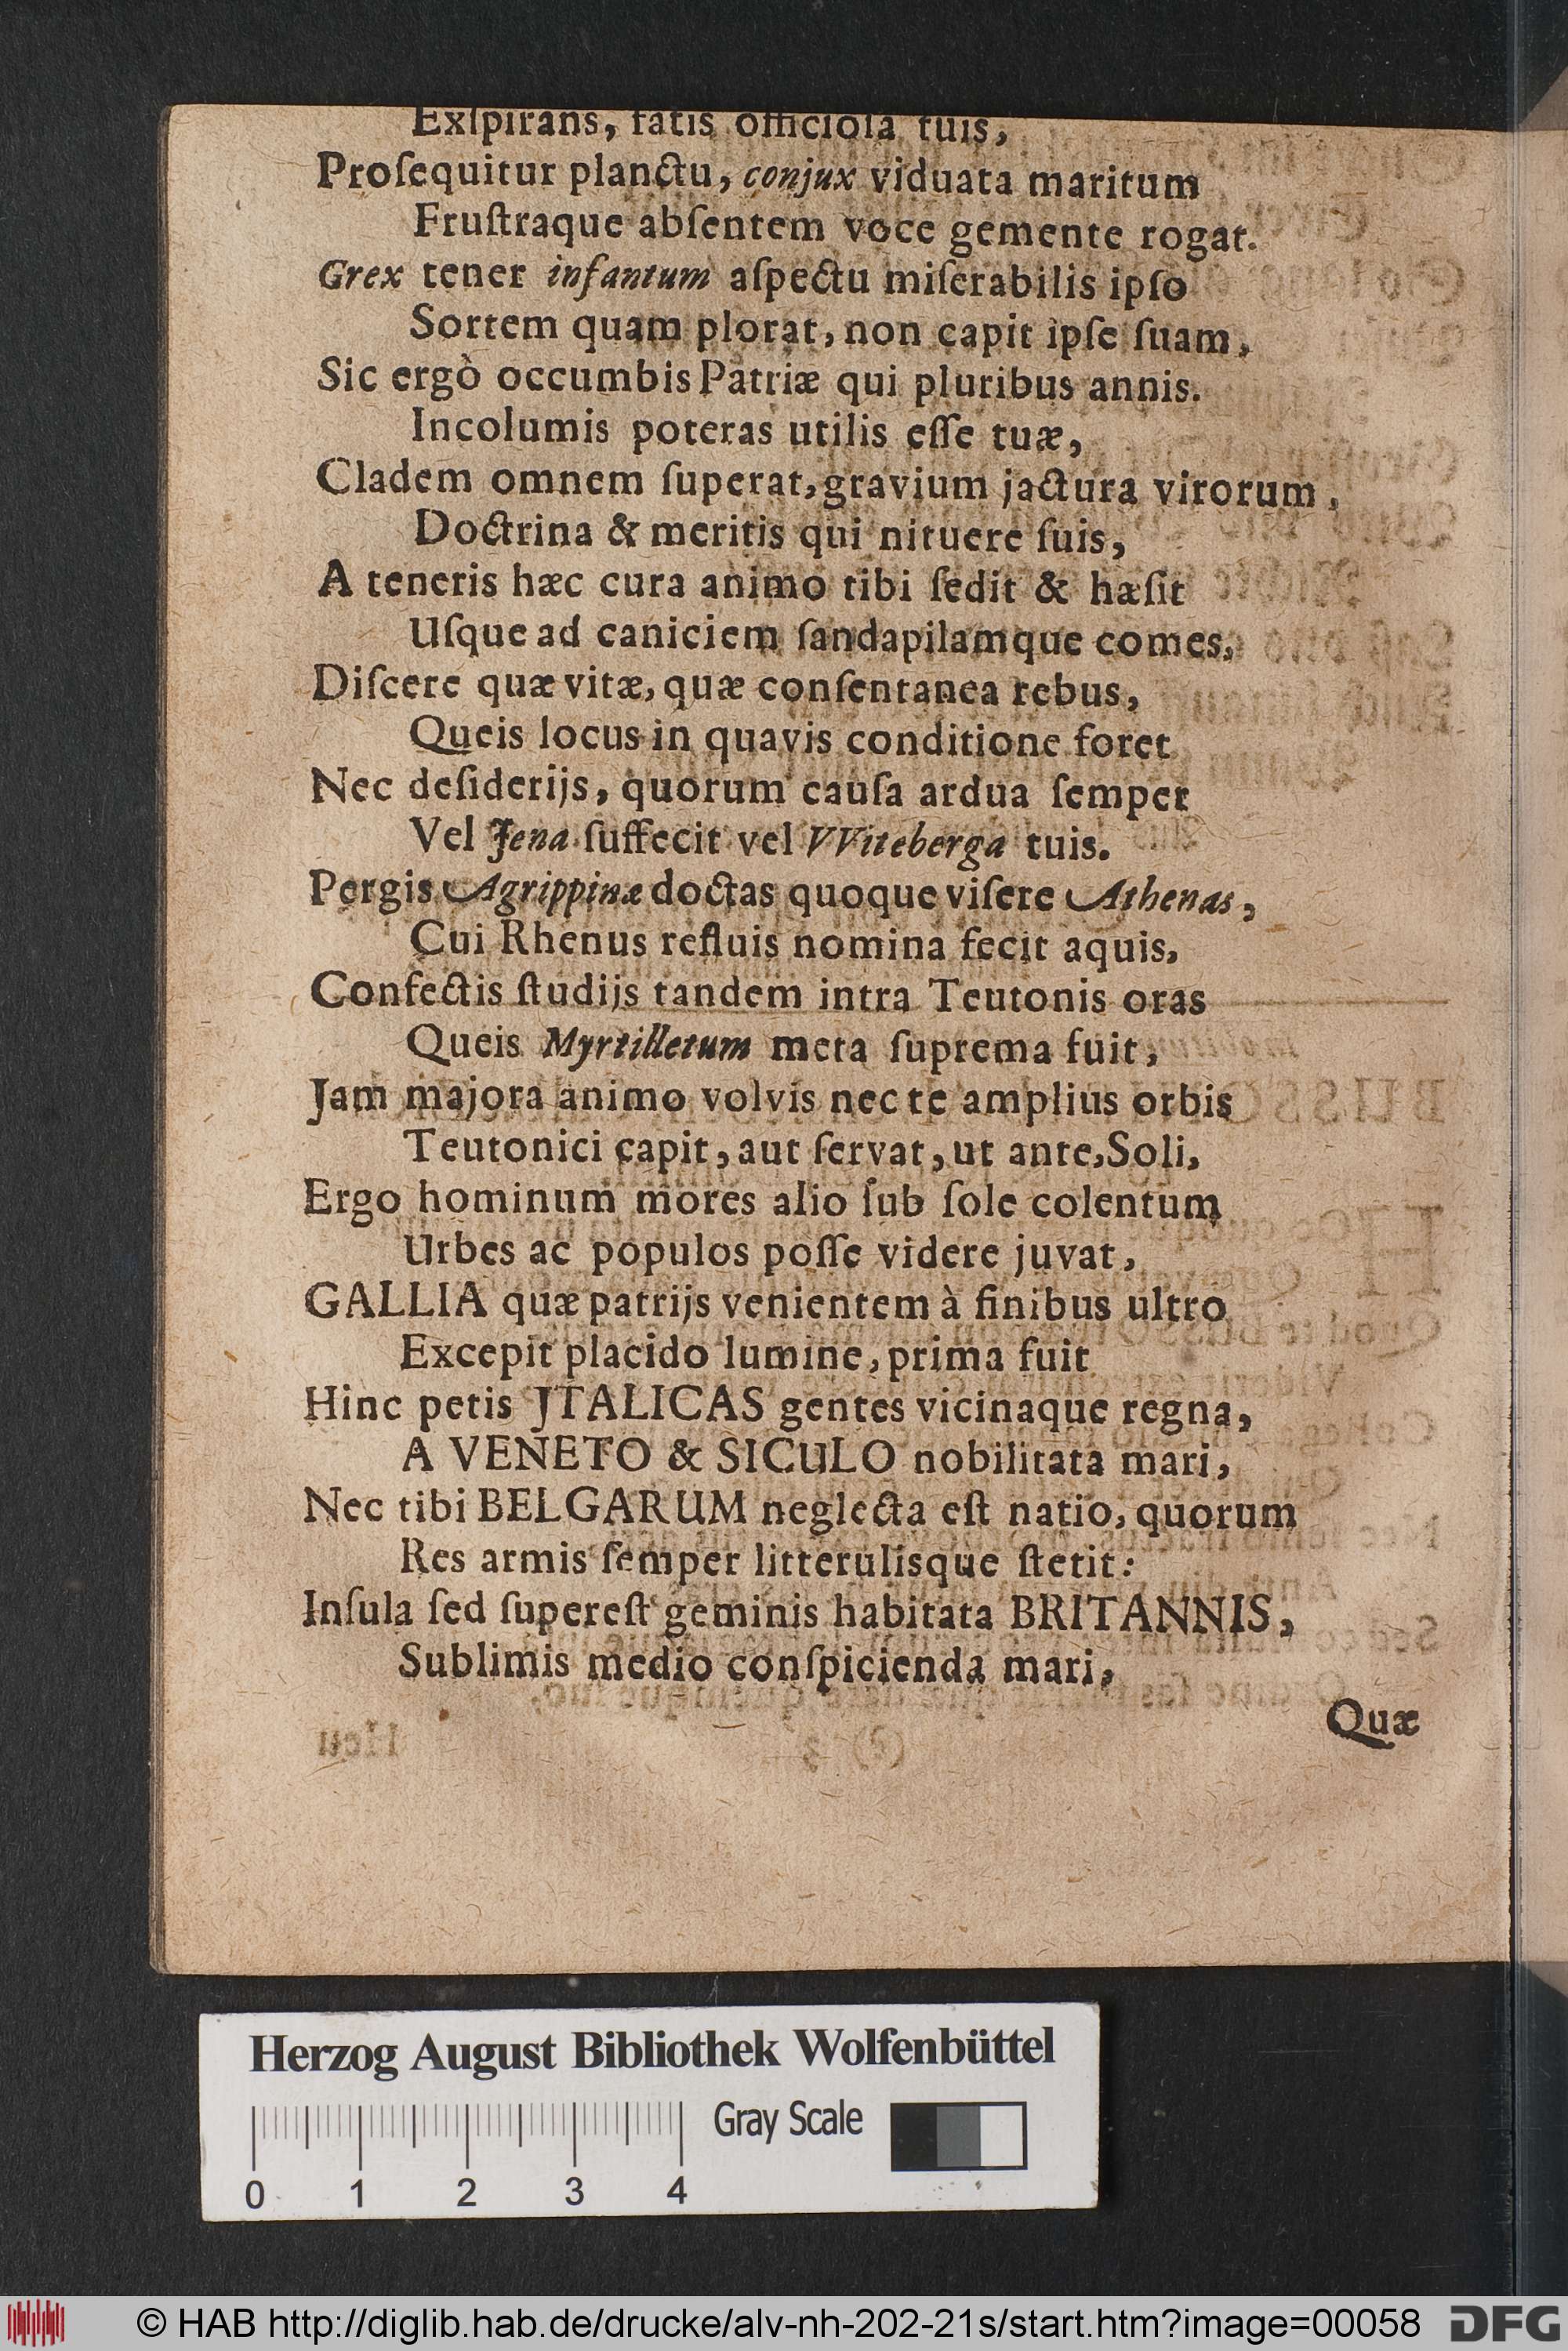 Exſpirans, fatis officioſa tuis,
Proſequitur planctu, conjux viduata maritum
Fruſtraque abſentem voce gemente rogat.
Grex tener infantum aſpectu miſerabilis ipſo
Sortem quam plorat, non capit ipſe ſuam,
Sic ergò occumbis Patriæ qui pluribus annis.
Incolumis poteras utilis eſſe tuæ,
Cladem omnem ſuperat, gravium jactura virorum,
Doctrina & meritis qui nituere ſuis,
A teneris hæc cura animo tibi ſedit & hæſit
Uſque ad caniciem ſandapilamque comes,
Diſcere quæ vitæ, quæ conſentanea rebus,
Queis locus in quavis conditione foret
Nec deſiderijs, quorum cauſa ardua ſemper
Vel Jena ſuffecit vel VViteberga tuis.
Pergis Agrippinæ doctas quoque viſere Athenas,
Cui Rhenus refluis nomina fecit aquis,
Confectis ſtudijs tandem intra Teutonis oras
Queis Myrtilletum meta ſuprema fuit,
Jam majora animo volvis nec te amplius orbis
Teutonici capit, aut ſervat, ut ante, Soli,
Ergo hominum mores alio ſub ſole colentum
Urbes ac populos poſſe videre juvat,
GALLIA quæ patrijs venientem à finibus ultro
Excepit placido lumine, prima fuit
Hinc petis JTALICAS gentes vicinaque regna,
A VENETO & SICULO nobilitata mari,
Nec tibi BELGARUM neglecta eſt natio, quorum
Res armis ſemper litterulisque ſtetit:
Inſula ſed ſupereſt geminis habitata BRITANNIS,
Sublimis medio conſpicienda mari,
Quæ
Herzog August Bibliothek Wolfenbüttel
Gray Scale
0 1 2 3 4
© HAB http://diglib.hab.de/drucke/alv-nh-202-21s/start.htm?image=00058
DFG